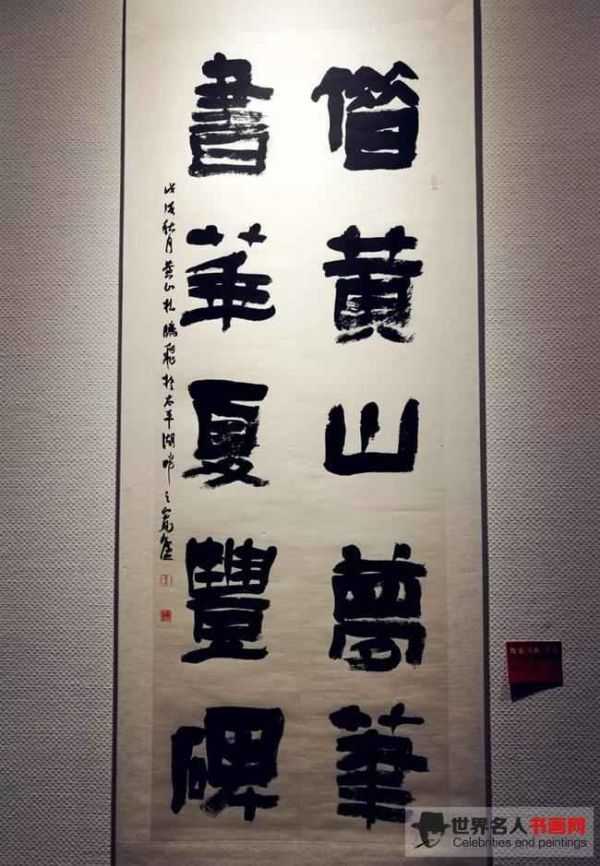 借黄山夢筆
書華夏豐碑
戊戌秋月黄山杜飛於太平湖畔之
世界名人书画网
Celebrities and paintings